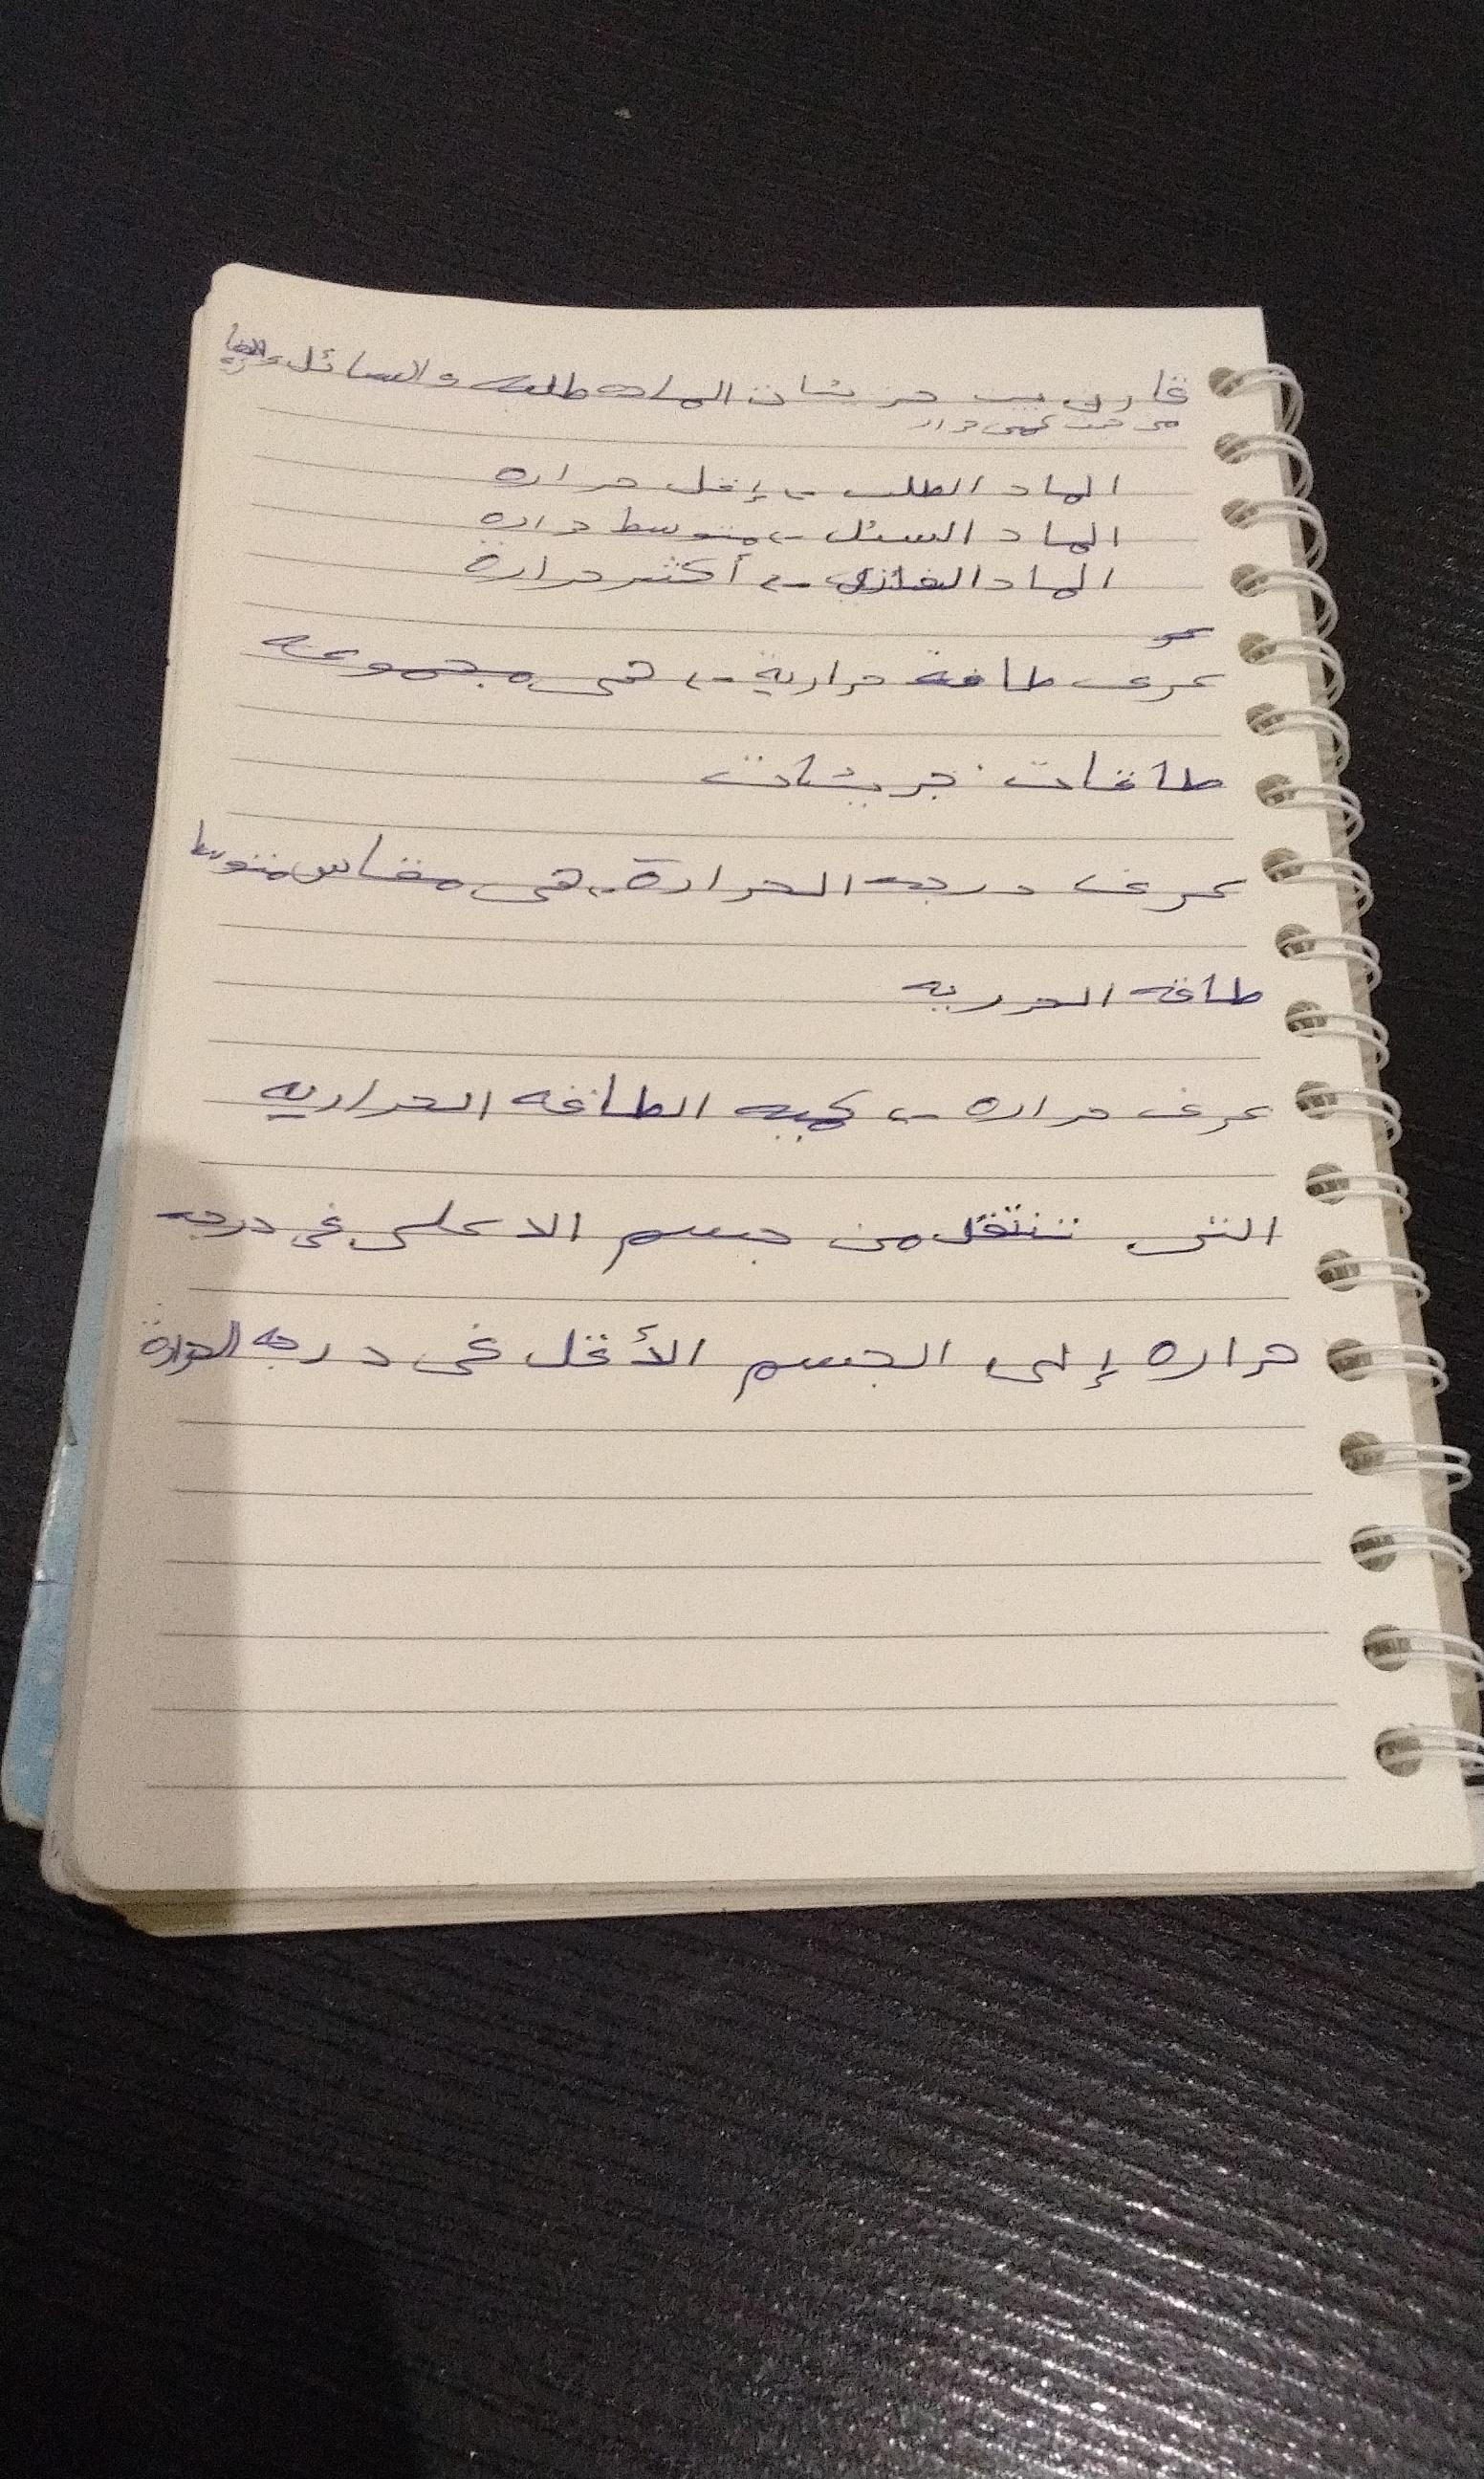 قارن بين جزيئات الماده طلبه والسائل والغا زيه
من حيث كمى حرار
الماد الطلب -، إقل حراره
الماد السئل -، متوسط حرارة
الماد الغازى -، أكثر حرارة
عر
عرف طاقة حرارية -، هى مجموعه
طاقات جزيئات
عرف درجه الحرارة -، هى مقاس متوسط
طاقه الحرريه
عرف حراره -، كميه الطاقه الحراريه
التى تنتقل من جسم الاعلى فى درجه
حراره إلى الجسم الأقل فى درجه الحرارة